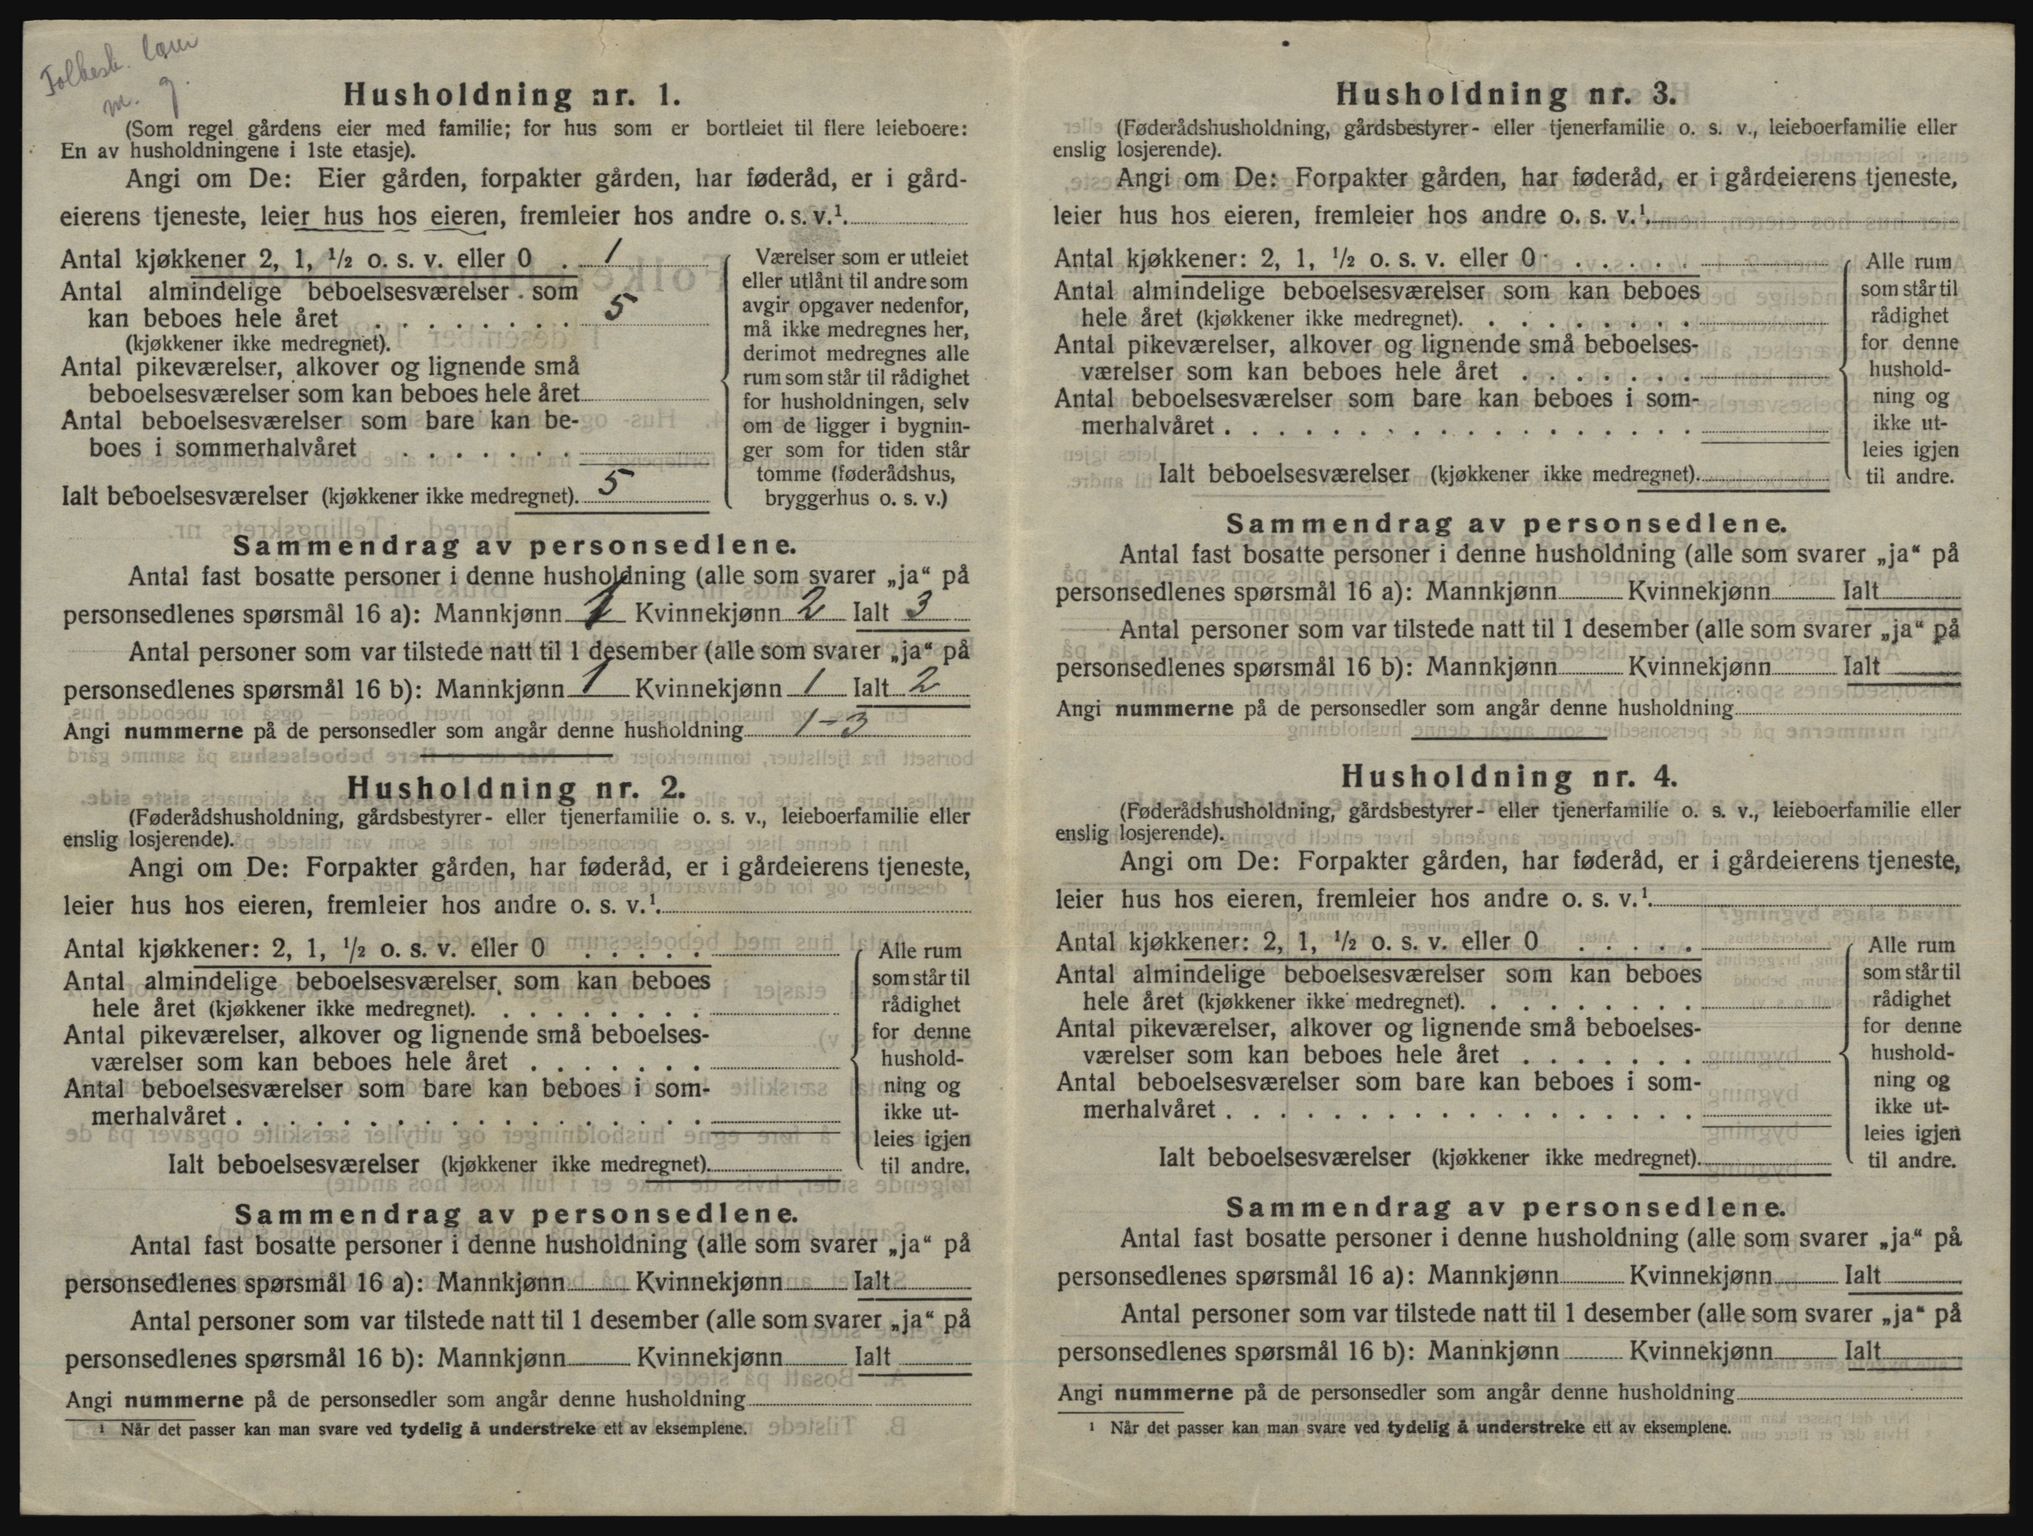 Folkesk. lærer
m. g.
Husholdning nr. 1.
(Som regel gårdens eier med familie; for hus som er bortleiet til flere leieboere:
En av husholdningene i 1ste etasje).
Angi om De: Eier gården, forpakter gården, har føderåd, er i gård-
eierens tjeneste, leier hus hos eieren, fremleier hos andre o. s. v.¹.
Antal kjøkkener 2, 1, ½ o. s. v. eller 0 . 1
Antal almindelige beboelsesværelser som
kan beboes hele året . . . . . . . . 5
(kjøkkener ikke medregnet).
Antal pikeværelser, alkover og lignende små
beboelsesværelser som kan beboes hele året
Antal beboelsesværelser som bare kan be-
boes i sommerhalvåret . . . . . . .
Ialt beboelsesværelser (kjøkkener ikke medregnet). 5
Værelser som er utleiet
eller utlånt til andre som
avgir opgaver nedenfor,
må ikke medregnes her,
derimot medregnes alle
rum som står til rådighet
for husholdningen, selv
om de ligger i bygnin-
ger som for tiden står
tomme (føderådshus,
bryggerhus o. s. v.)
Sammendrag av personsedlene.
Antal fast bosatte personer i denne husholdning (alle som svarer „ja“ på
personsedlenes spørsmål 16 a): Mannkjønn 1 Kvinnekjønn 2 Ialt 3
Antal personer som var tilstede natt til 1 desember (alle som svarer „ja“ på
personsedlenes spørsmål 16 b): Mannkjønn 1 Kvinnekjønn 1 Ialt 2
Angi nummerne på de personsedler som angår denne husholdning 1-3
Husholdning nr. 2.
(Føderådshusholdning, gårdsbestyrer- eller tjenerfamilie o. s. v., leieboerfamilie eller
enslig losjerende).
Angi om De: Forpakter gården, har føderåd, er i gårdeierens tjeneste,
leier hus hos eieren, fremleier hos andre o. s. v.¹.
Antal kjøkkener: 2, 1, ½ o. s. v. eller 0 . . . . .
Antal almindelige beboelsesværelser som kan beboes
hele året (kjøkkener ikke medregnet). . . . . . . . .
Antal pikeværelser, alkover og lignende små beboelses-
værelser som kan beboes hele året . . . . . . .
Antal beboelsesværelser som bare kan beboes i som-
merhalvåret . . . . . . . . . . . . . . . . . .
Ialt beboelsesværelser (kjøkkener ikke medregnet).
Alle rum
som står til
rådighet
for denne
hushold-
ning og
ikke ut-
leies igjen
til andre.
Sammendrag av personsedlene.
Antal fast bosatte personer i denne husholdning (alle som svarer „ja“ på
personsedlenes spørsmål 16 a): Mannkjønn Kvinnekjønn Ialt
Antal personer som var tilstede natt til 1 desember (alle som svarer „ja“ på
personsedlenes spørsmål 16 b): Mannkjønn Kvinnekjønn Ialt
Angi nummerne på de personsedler som angår denne husholdning
¹ Når det passer kan man svare ved tydelig å understreke ett av eksemplene.
Husholdning nr. 3.
(Føderådshusholdning, gårdsbestyrer- eller tjenerfamilie o. s. v., leieboerfamilie eller
enslig losjerende).
Angi om De: Forpakter gården, har føderåd, er i gårdeierens tjeneste,
leier hus hos eieren, fremleier hos andre o. s. v.¹.
Antal kjøkkener: 2, 1, ½ o. s. v. eller 0 . . . . .
Antal almindelige beboelsesværelser som kan beboes
hele året (kjøkkener ikke medregnet). . . . . . . . .
Antal pikeværelser, alkover og lignende små beboelses-
værelser som kan beboes hele året . . . . . . .
Antal beboelsesværelser som bare kan beboes i som-
merhalvåret . . . . . . . . . . . . . . . . . .
Ialt beboelsesværelser (kjøkkener ikke medregnet).
Alle rum
som står til
rådighet
for denne
hushold-
ning og
ikke ut-
leies igjen
til andre.
Sammendrag av personsedlene.
Antal fast bosatte personer i denne husholdning (alle som svarer „ja“ på
personsedlenes spørsmål 16 a): Mannkjønn Kvinnekjønn Ialt
Antal personer som var tilstede natt til 1 desember (alle som svarer „ja“ på
personsedlenes spørsmål 16 b): Mannkjønn Kvinnekjønn Ialt
Angi nummerne på de personsedler som angår denne husholdning
Husholdning nr. 4.
(Føderådshusholdning, gårdsbestyrer- eller tjenerfamilie o. s. v., leieboerfamilie eller
enslig losjerende).
Angi om De: Forpakter gården, har føderåd, er i gårdeierens tjeneste,
leier hus hos eieren, fremleier hos andre o. s. v.¹.
Antal kjøkkener: 2, 1, ½ o. s. v. eller 0 . . . . .
Antal almindelige beboelsesværelser som kan beboes
hele året (kjøkkener ikke medregnet). . . . . . . . .
Antal pikeværelser, alkover og lignende små beboelses-
værelser som kan beboes hele året . . . . . . .
Antal beboelsesværelser som bare kan beboes i som-
merhalvåret . . . . . . . . . . . . . . . . . .
Ialt beboelsesværelser (kjøkkener ikke medregnet).
Alle rum
som står til
rådighet
for denne
hushold-
ning og
ikke ut-
leies igjen
til andre.
Sammendrag av personsedlene.
Antal fast bosatte personer i denne husholdning (alle som svarer „ja“ på
personsedlenes spørsmål 16 a): Mannkjønn Kvinnekjønn Ialt
Antal personer som var tilstede natt til 1 desember (alle som svarer „ja“ på
personsedlenes spørsmål 16 b): Mannkjønn Kvinnekjønn Ialt
Angi nummerne på de personsedler som angår denne husholdning
¹ Når det passer kan man svare ved tydelig å understreke ett av eksemplene.